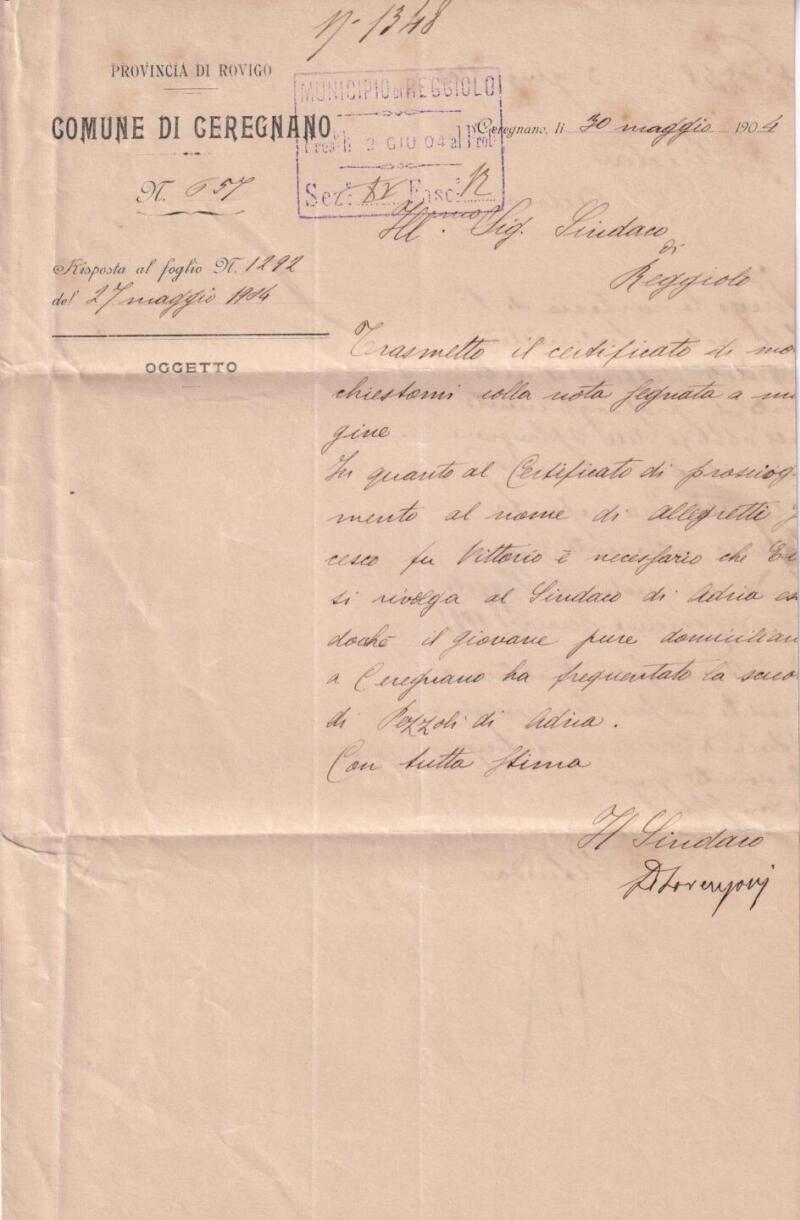 N. 1348
PROVINCIA DI ROVIGO
COMUNE DI CEREGNANO
N. 657
Risposta al foglio N. 1292
del 27 maggio 1904
OGGETTO
MUNICIPIO di REGGIOLO
2 GIU 04 al Prot.
Sez. IV Fasc.
Ceregnano, li 30 maggio 1904
Ill.mo Sig. Sindaco
di
Reggiolo
Trasmetto il certificato di mo
chiestomi colla nota segnata a
gine
In quanto al Certificato di prosciog
mento al nome di Allegretti
cesco fu Vittorio è necessario che
si rivolga al Sindaco di Adria
dochè il giovane pure domicilian
a Ceregnano ha frequentato la scuo
di Pezzoli di Adria.
Con tutta stima
Il Sindaco